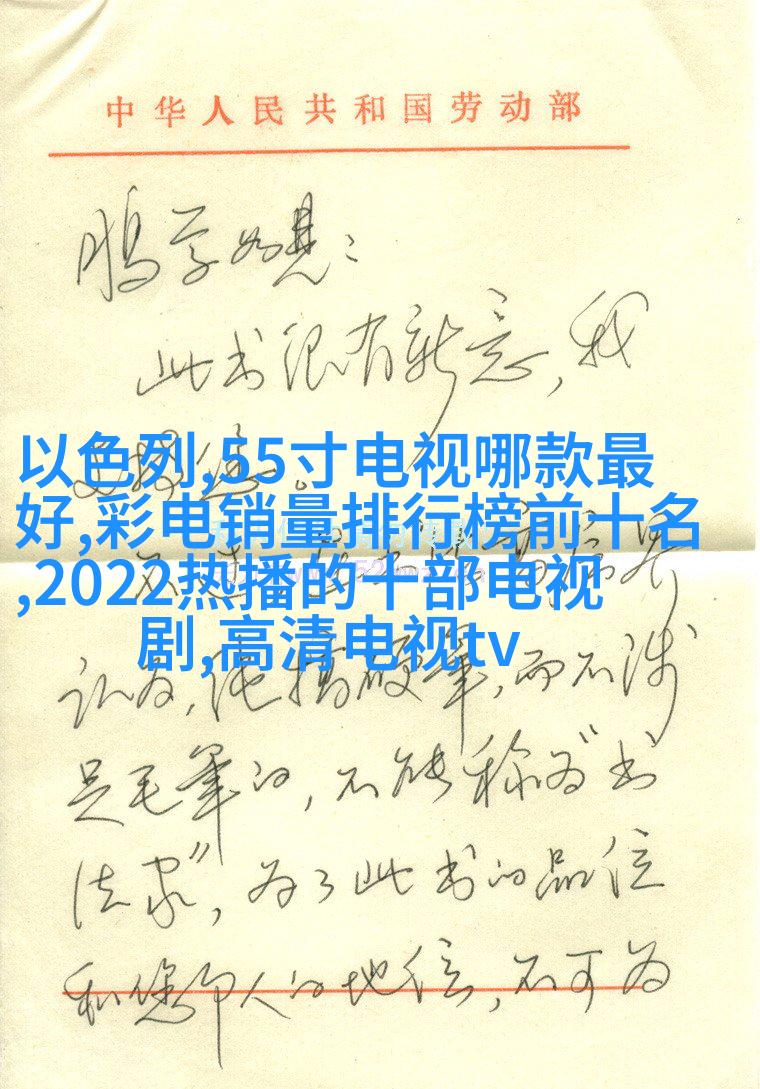 中华人民共和国劳动部
鹏学如晤：
此书很有新意，我
以色列,55寸电视哪款最
好,彩电销量排行榜前十名
,2022热播的十部电视
剧,高清电视tv
认为，纯搞硬笔，而不涉
足毛笔的，不能称为“书
法家”，为了此书的品位
和您本人的地位，不可为